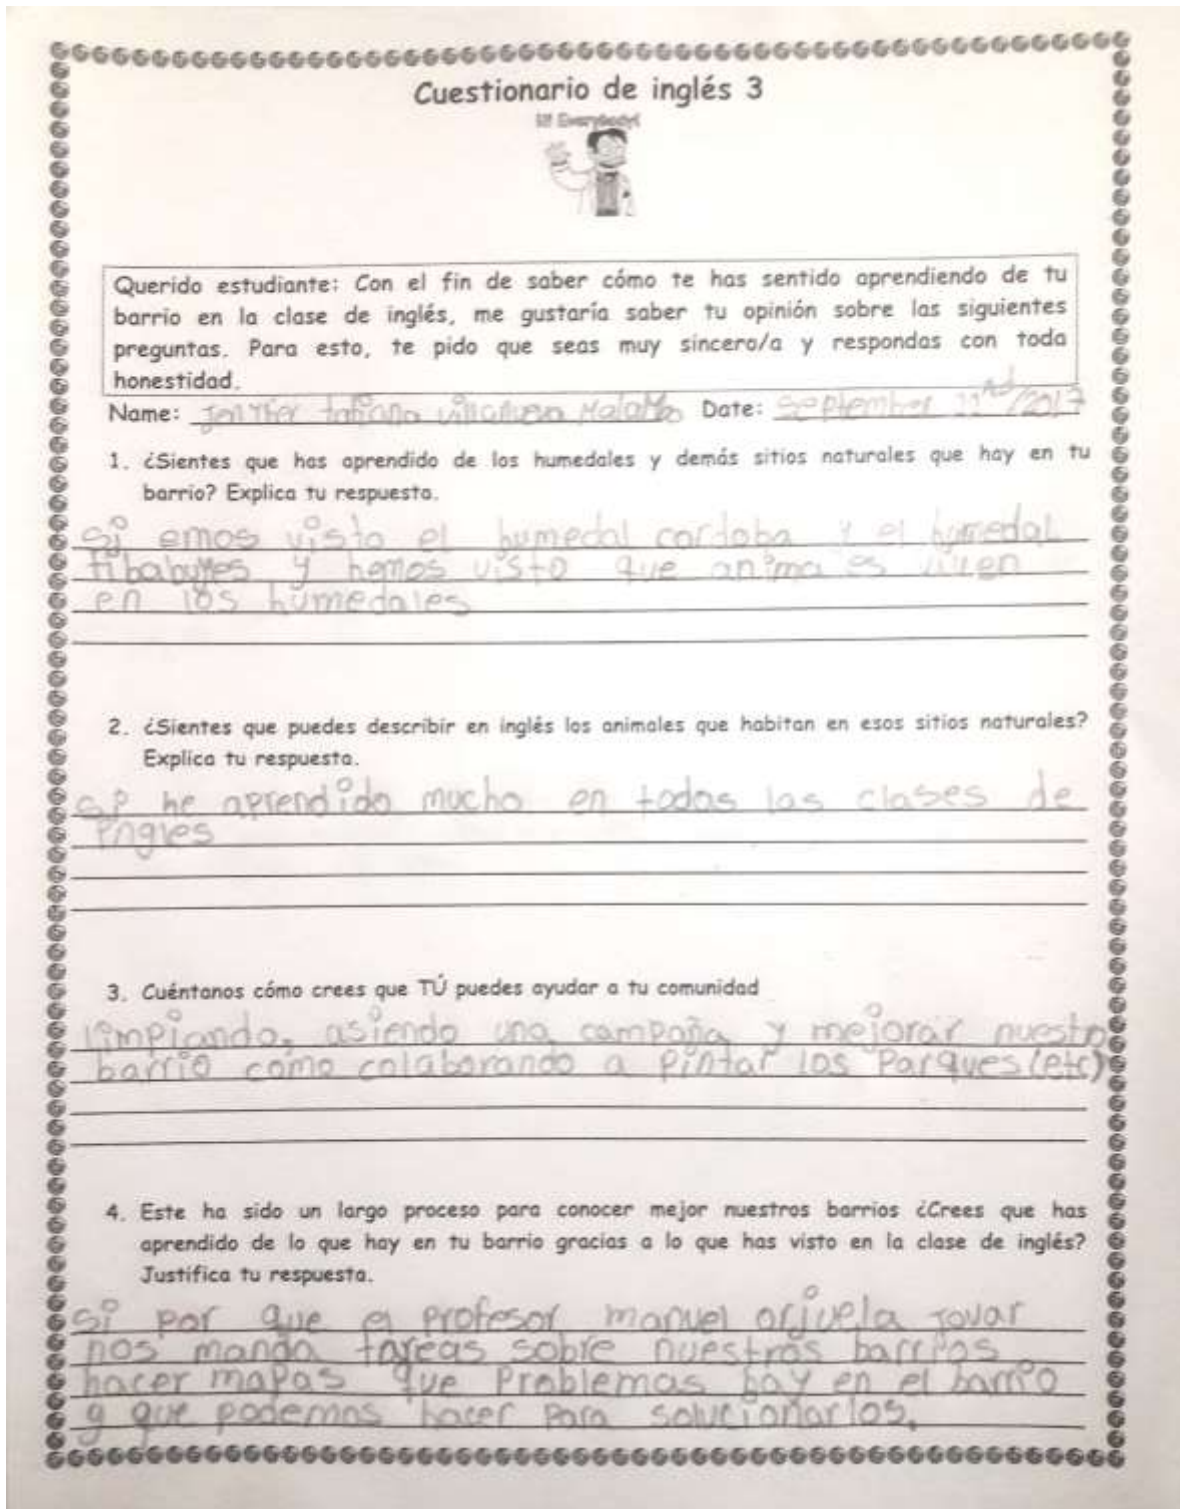 Cuestionario de inglés 3
Hi Everybody!
Querido estudiante: Con el fin de saber cómo te has sentido aprendiendo de tu
barrio en la clase de inglés, me gustaría saber tu opinión sobre las siguientes
preguntas. Para esto, te pido que seas muy sincero/a y respondas con toda
honestidad.
Name: tatiana villanueva Date: September /2017
1. ¿Sientes que has aprendido de los humedales y demás sitios naturales que hay en tu
barrio? Explica tu respuesta.
si emos visto el humedal cordoba y el humedal
tibabuyes y hemos visto que animales viven
en los humedales
2. ¿Sientes que puedes describir en inglés los animales que habitan en esos sitios naturales?
Explica tu respuesta.
si he aprendido mucho en todas las clases de
ingles
3. Cuéntanos cómo crees que TÚ puedes ayudar a tu comunidad
limpiando, asiendo una campaña y mejorar nuestro
barrio como colaborando a pintar los parques (etc)
4. Este ha sido un largo proceso para conocer mejor nuestros barrios ¿Crees que has
aprendido de lo que hay en tu barrio gracias a lo que has visto en la clase de inglés?
Justifica tu respuesta.
si por que el profesor manuel orjuela tovar
nos manda tareas sobre nuestros barrios
hacer mapas que problemas hay en el barrio
y que podemos hacer para solucionarlos.